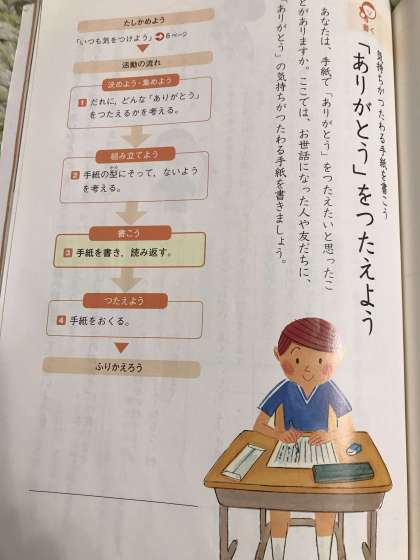 書く
気持ちがつたわる手紙を書こう
「ありがとう」をつたえよう
あなたは、手紙で「ありがとう」をつたえたいと思ったこ
とがありますか。ここでは、お世話になった人や友だちに、
「ありがとう」の気持ちがつたわる手紙を書きましょう。
たしかめよう
「いつも気をつけよう」6ページ
活動の流れ
決めよう・集めよう
1 だれに、どんな「ありがとう」
をつたえるかを考える。
組み立てよう
2 手紙の型にそって、ないよう
を考える。
書こう
3 手紙を書き、読み返す。
つたえよう
4 手紙をおくる。
ふりかえろう